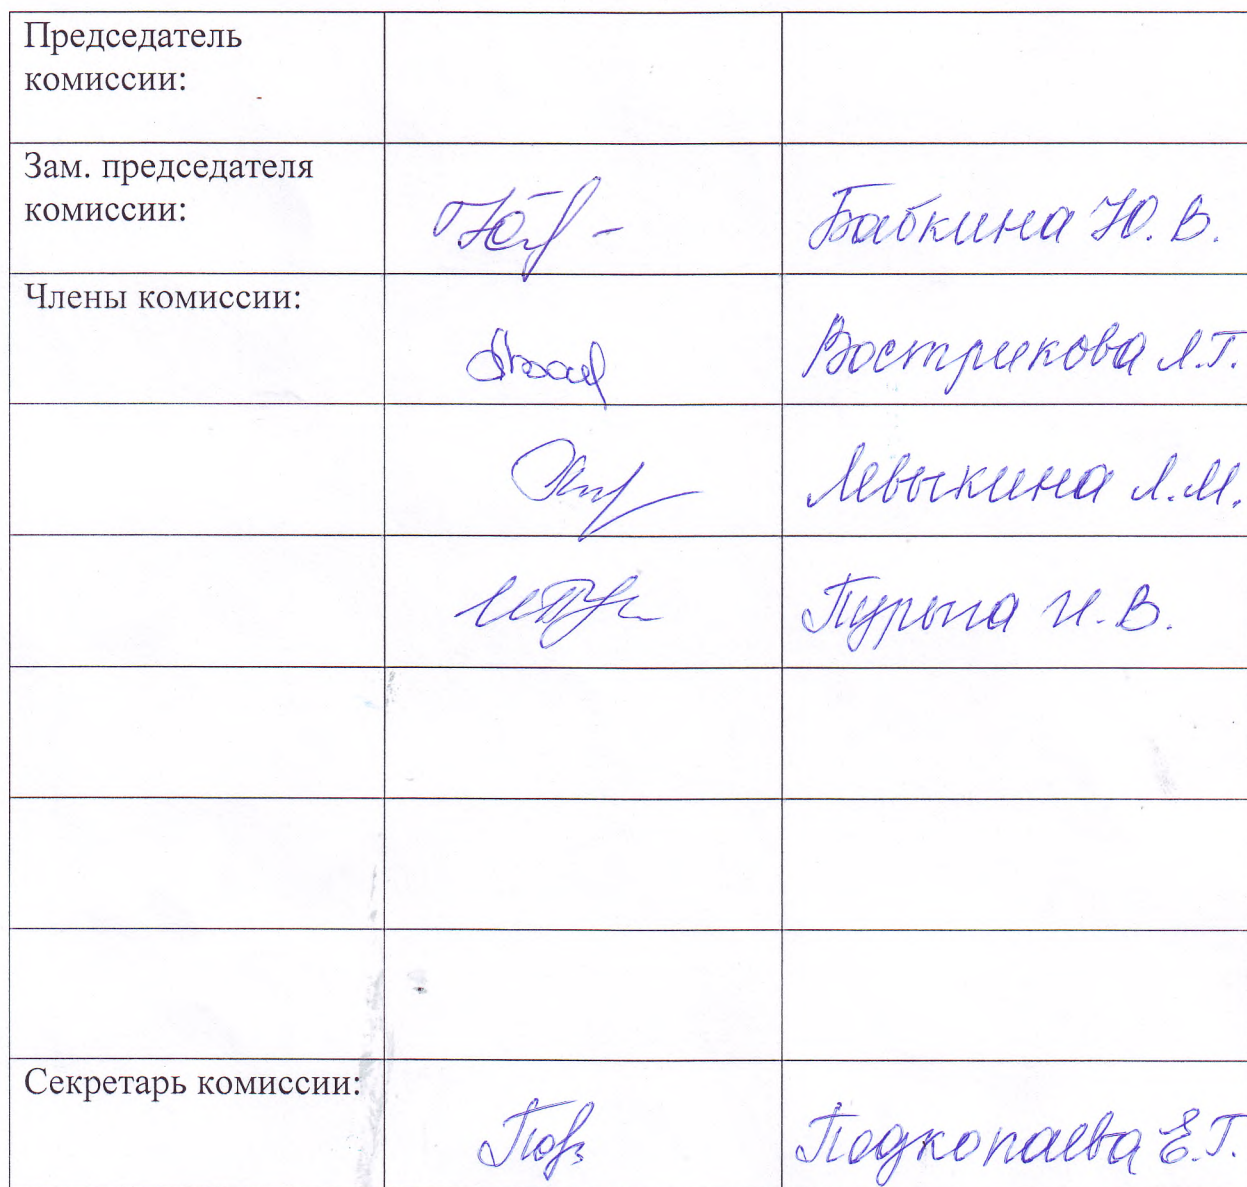 Председатель
комиссии:
Зам. председателя
комиссии:
Бабкина Ю. В.
Члены комиссии:
Вострикова Л.Г.
Левыкина Л.М.
И. В.
Секретарь комиссии:
Подкопаева Е.Г.